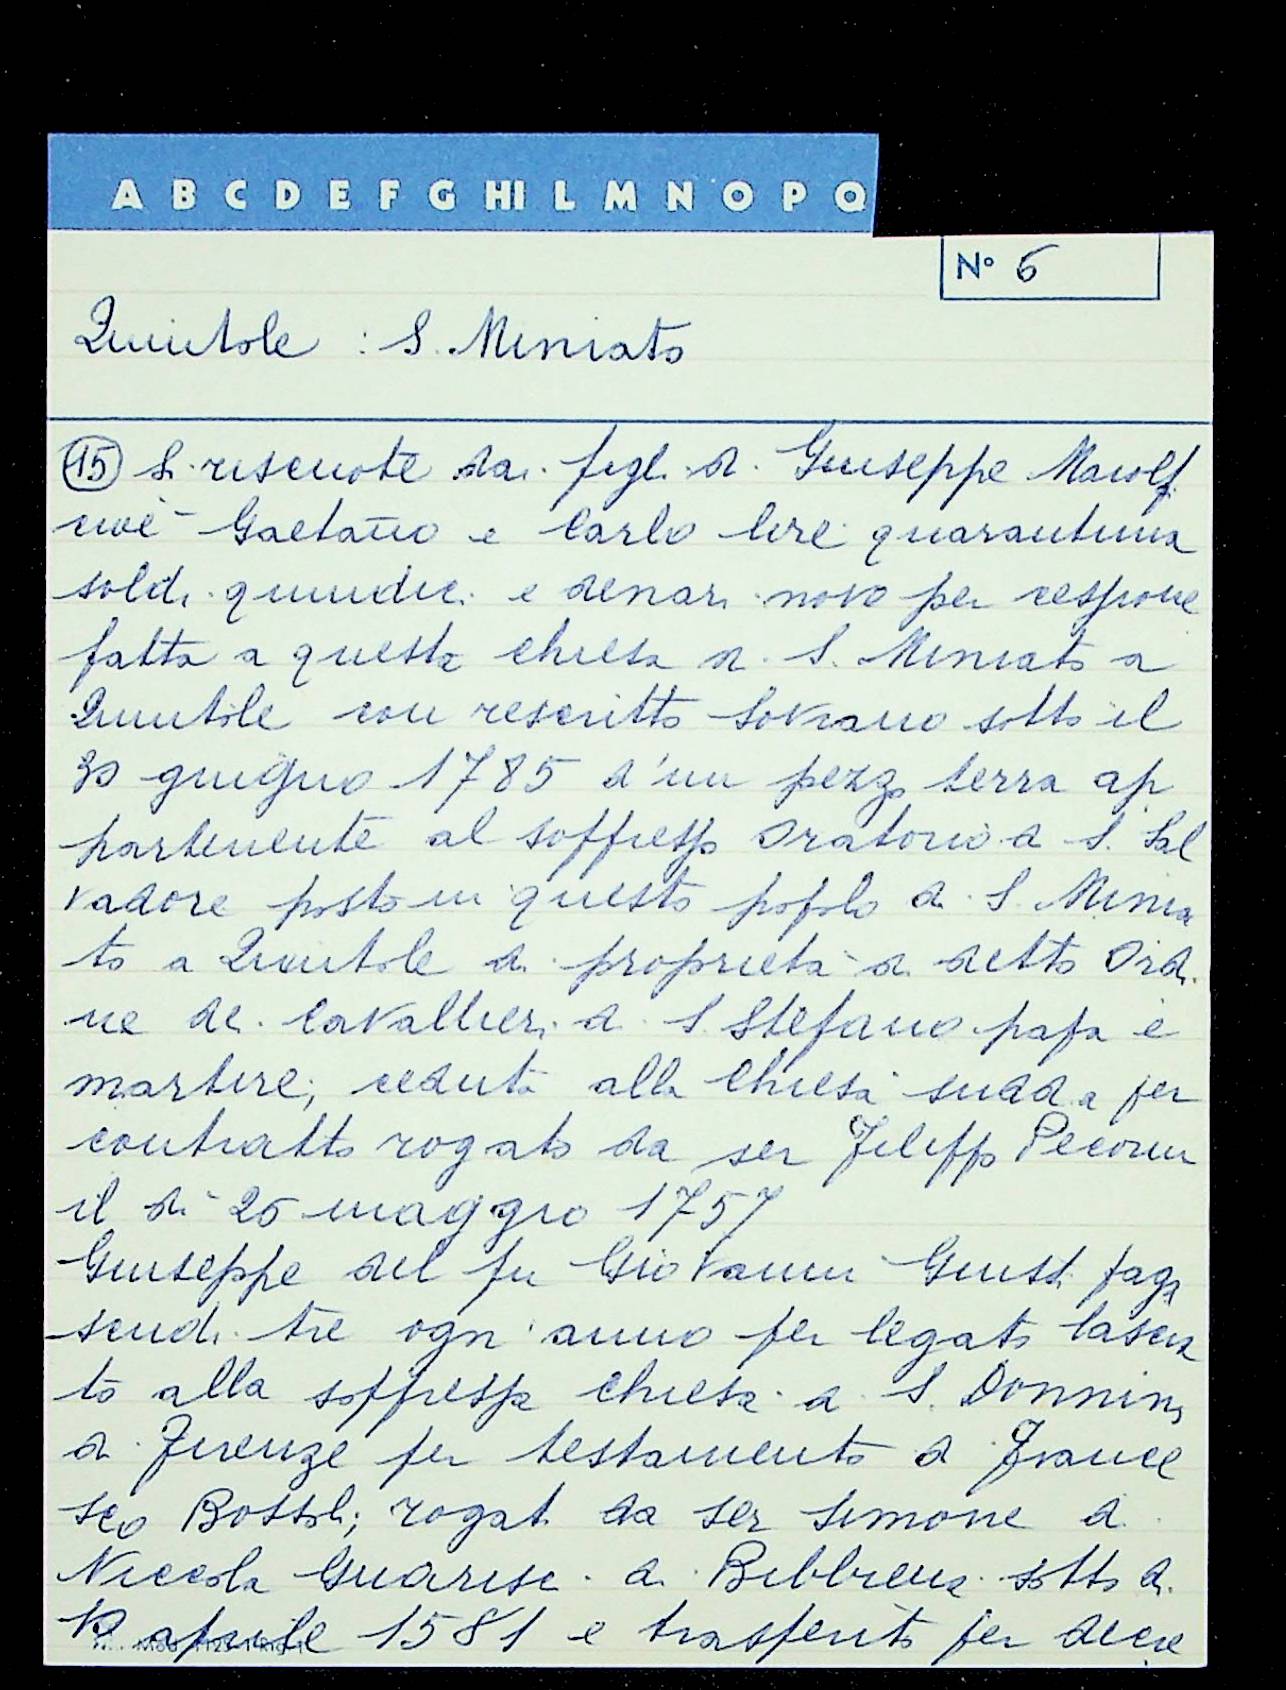 A B C D E F G HI L M N O P Q
N° 6
Quintole : S. Miniato
(15) Si riscuote dai figli di Giuseppe Masolf
cioè Gaetano e Carlo lire quarantuna
soldi quindici e denari nove per cessione
fatta a questa chiesa di S. Miniato a
Quintole con rescritto sovrano sotto il
30 giugno 1785 d'un pezzo terra ap
partenente al soppresso oratorio di S. Sal
vadore posto in questo popolo di S. Minia
to a Quintole di proprietà di detto Ordi
ne dei Cavallieri di S. Stefano papa e
martire, ceduta alla Chiesa sudd.a per
contratto rogato da ser Filippo Pecorini
il dì 26 maggio 1757
Giuseppe del fu Giovanni Giusti paga
scudi tre ogni anno per legato lascia
to alla soppressa chiesa di S. Donnino
di Firenze per testamento di France
sco Bossoli; rogat. da ser Simone di
Niccola Guarisci di Bibbiena sotto di
aprile 1581 e trasferito per decre